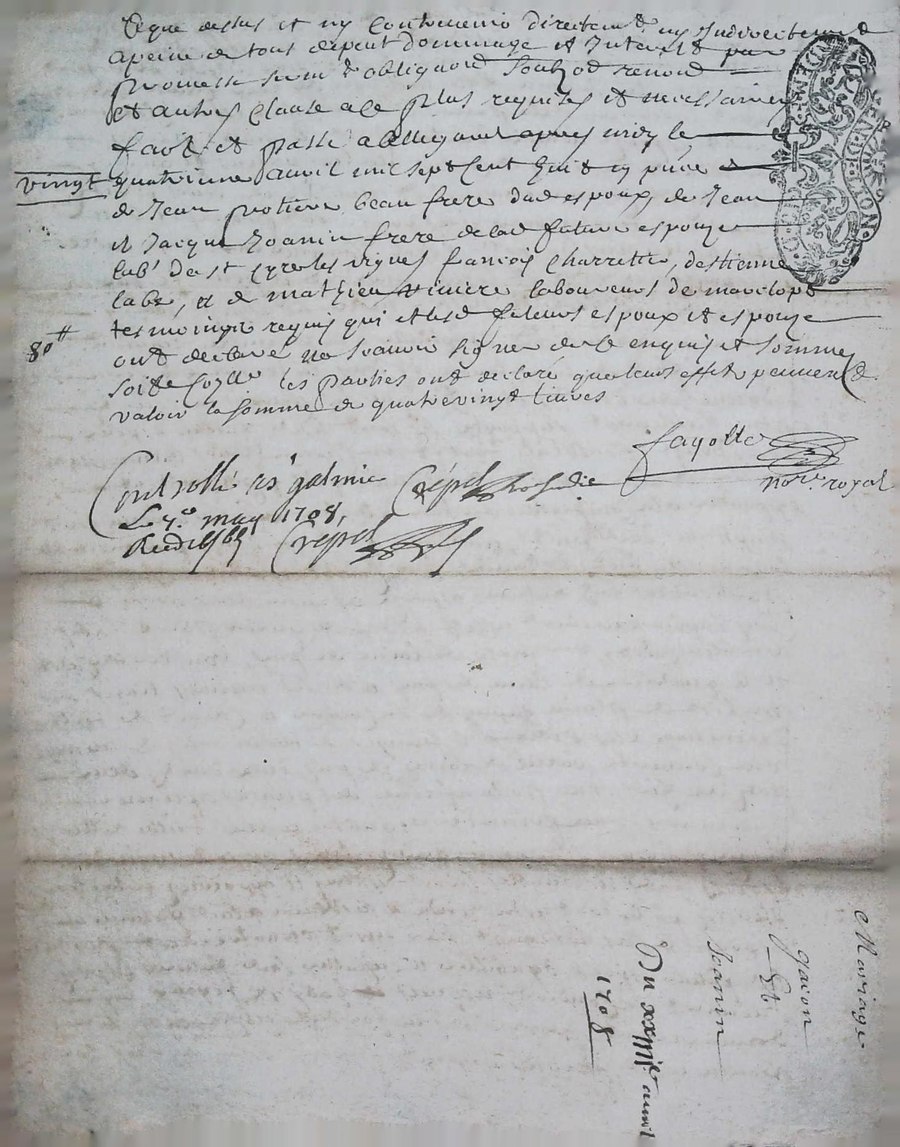 que dessus et ny contrevenir directemt ny Indirectemt
a peine de tous depent dommage et Interest par
promesse serment obligaons soubz et renonc
et autres clause a ce plus requises et necessaires
faict et passé a apres midy le
vingt
quatrieme avril mil sept cent huit en pnce
de Jean beau frere dud espoux, de Jean
et Jacque Joanin frere de lad future espouze
labr de st Cyre les vignes francois Charrettie, destienne
labe, et de mathieu viniere laboureurs de
tesmoingtz requis qui et lesd futeurs espoux et espouze
80tt
ont declare ne scavoir signer de ce enquis et sommes
soit les parties ont declaré que leurs effet peuvent
valoir la somme de quatrevingt livres
fayolle
nore royal
Controllé a st galmie
Le 7e may 1708,
Crépet
Crepet
Mariage
gaion
et
Joanin
Du xxiiiie avril
1708